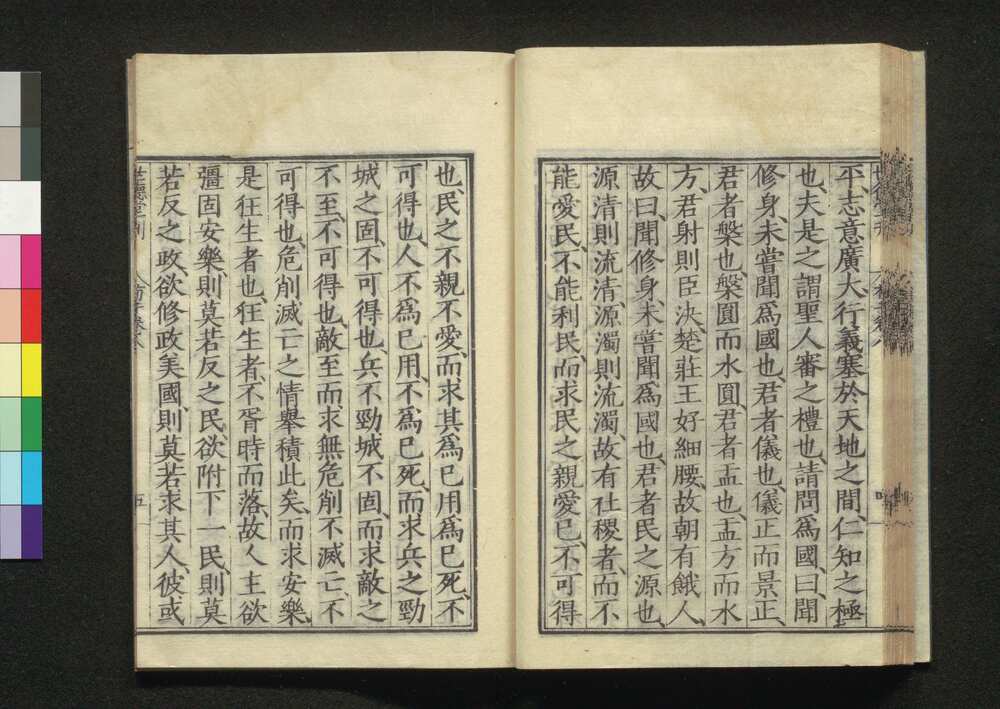 平、志意廣大、行義塞於天地之間、仁知之極
也、夫是之謂聖人審之禮也、請問爲國、曰、聞
修身、未嘗聞爲國也、君者儀也、儀正而景正、
君者槃也、槃圓而水圓、君者盂也、盂方而水
方、君射則臣決、楚莊王好細腰、故朝有餓人、
故曰、聞修身、未嘗聞爲國也、君者民之源也、
源清則流清、源濁則流濁、故有社稷者、而不
能愛民、不能利民、而求民之親愛已、不可得
也、民之不親不愛、而求其爲已用爲已死、不
可得也、人不爲已用、不爲已死、而求兵之勁
城之固、不可得也、兵不勁城不固、而求敵之
不至、不可得也、敵至而求無危削不滅亡、不
可得也、危削滅亡之情舉積此矣、而求安樂、
是狂生者也、狂生者、不胥時而落、故人主欲
彊固安樂、則莫若反之民、欲附下一民、則莫
若反之政、欲修政美國、則莫若求其人、彼或
五